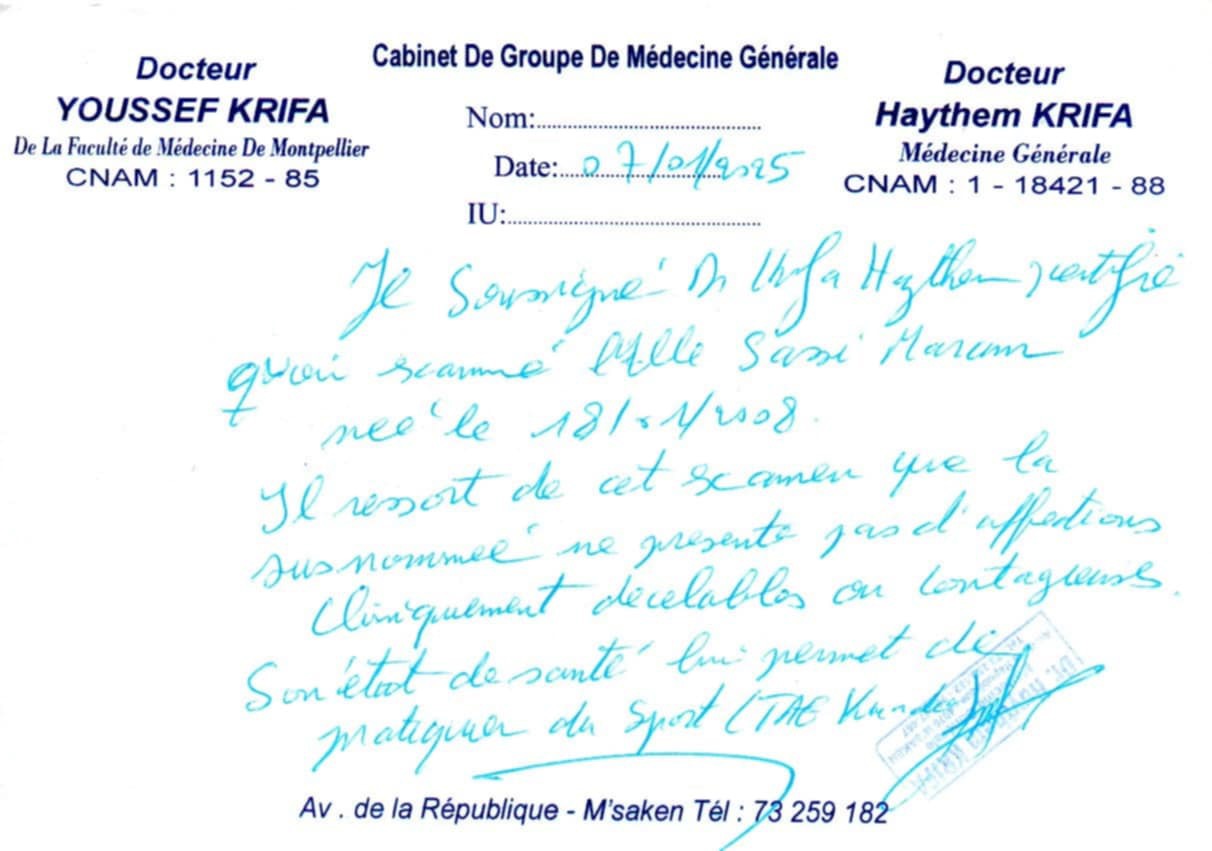 Cabinet De Groupe De Médecine Générale
Docteur
YOUSSEF KRIFA
De La Faculté de Médecine De Montpellier
CNAM : 1152 - 85
Nom:
Date: 07/01/2025
IU:
Docteur
Haythem KRIFA
Médecine Générale
CNAM : 1 - 18421 - 88
Je Soussigné Dr Krifa Haythem certifie
qu'avoir examiné Mlle Sassi Maram
née le 18/01/2008.
Il ressort de cet examen que la
susnommée ne présente pas d'affections
Cliniquement décelables ou contagieuses.
Son état de santé lui permet de
pratiquer du Sport (TAE Kwando
Av . de la République - M'saken Tél : 73 259 182